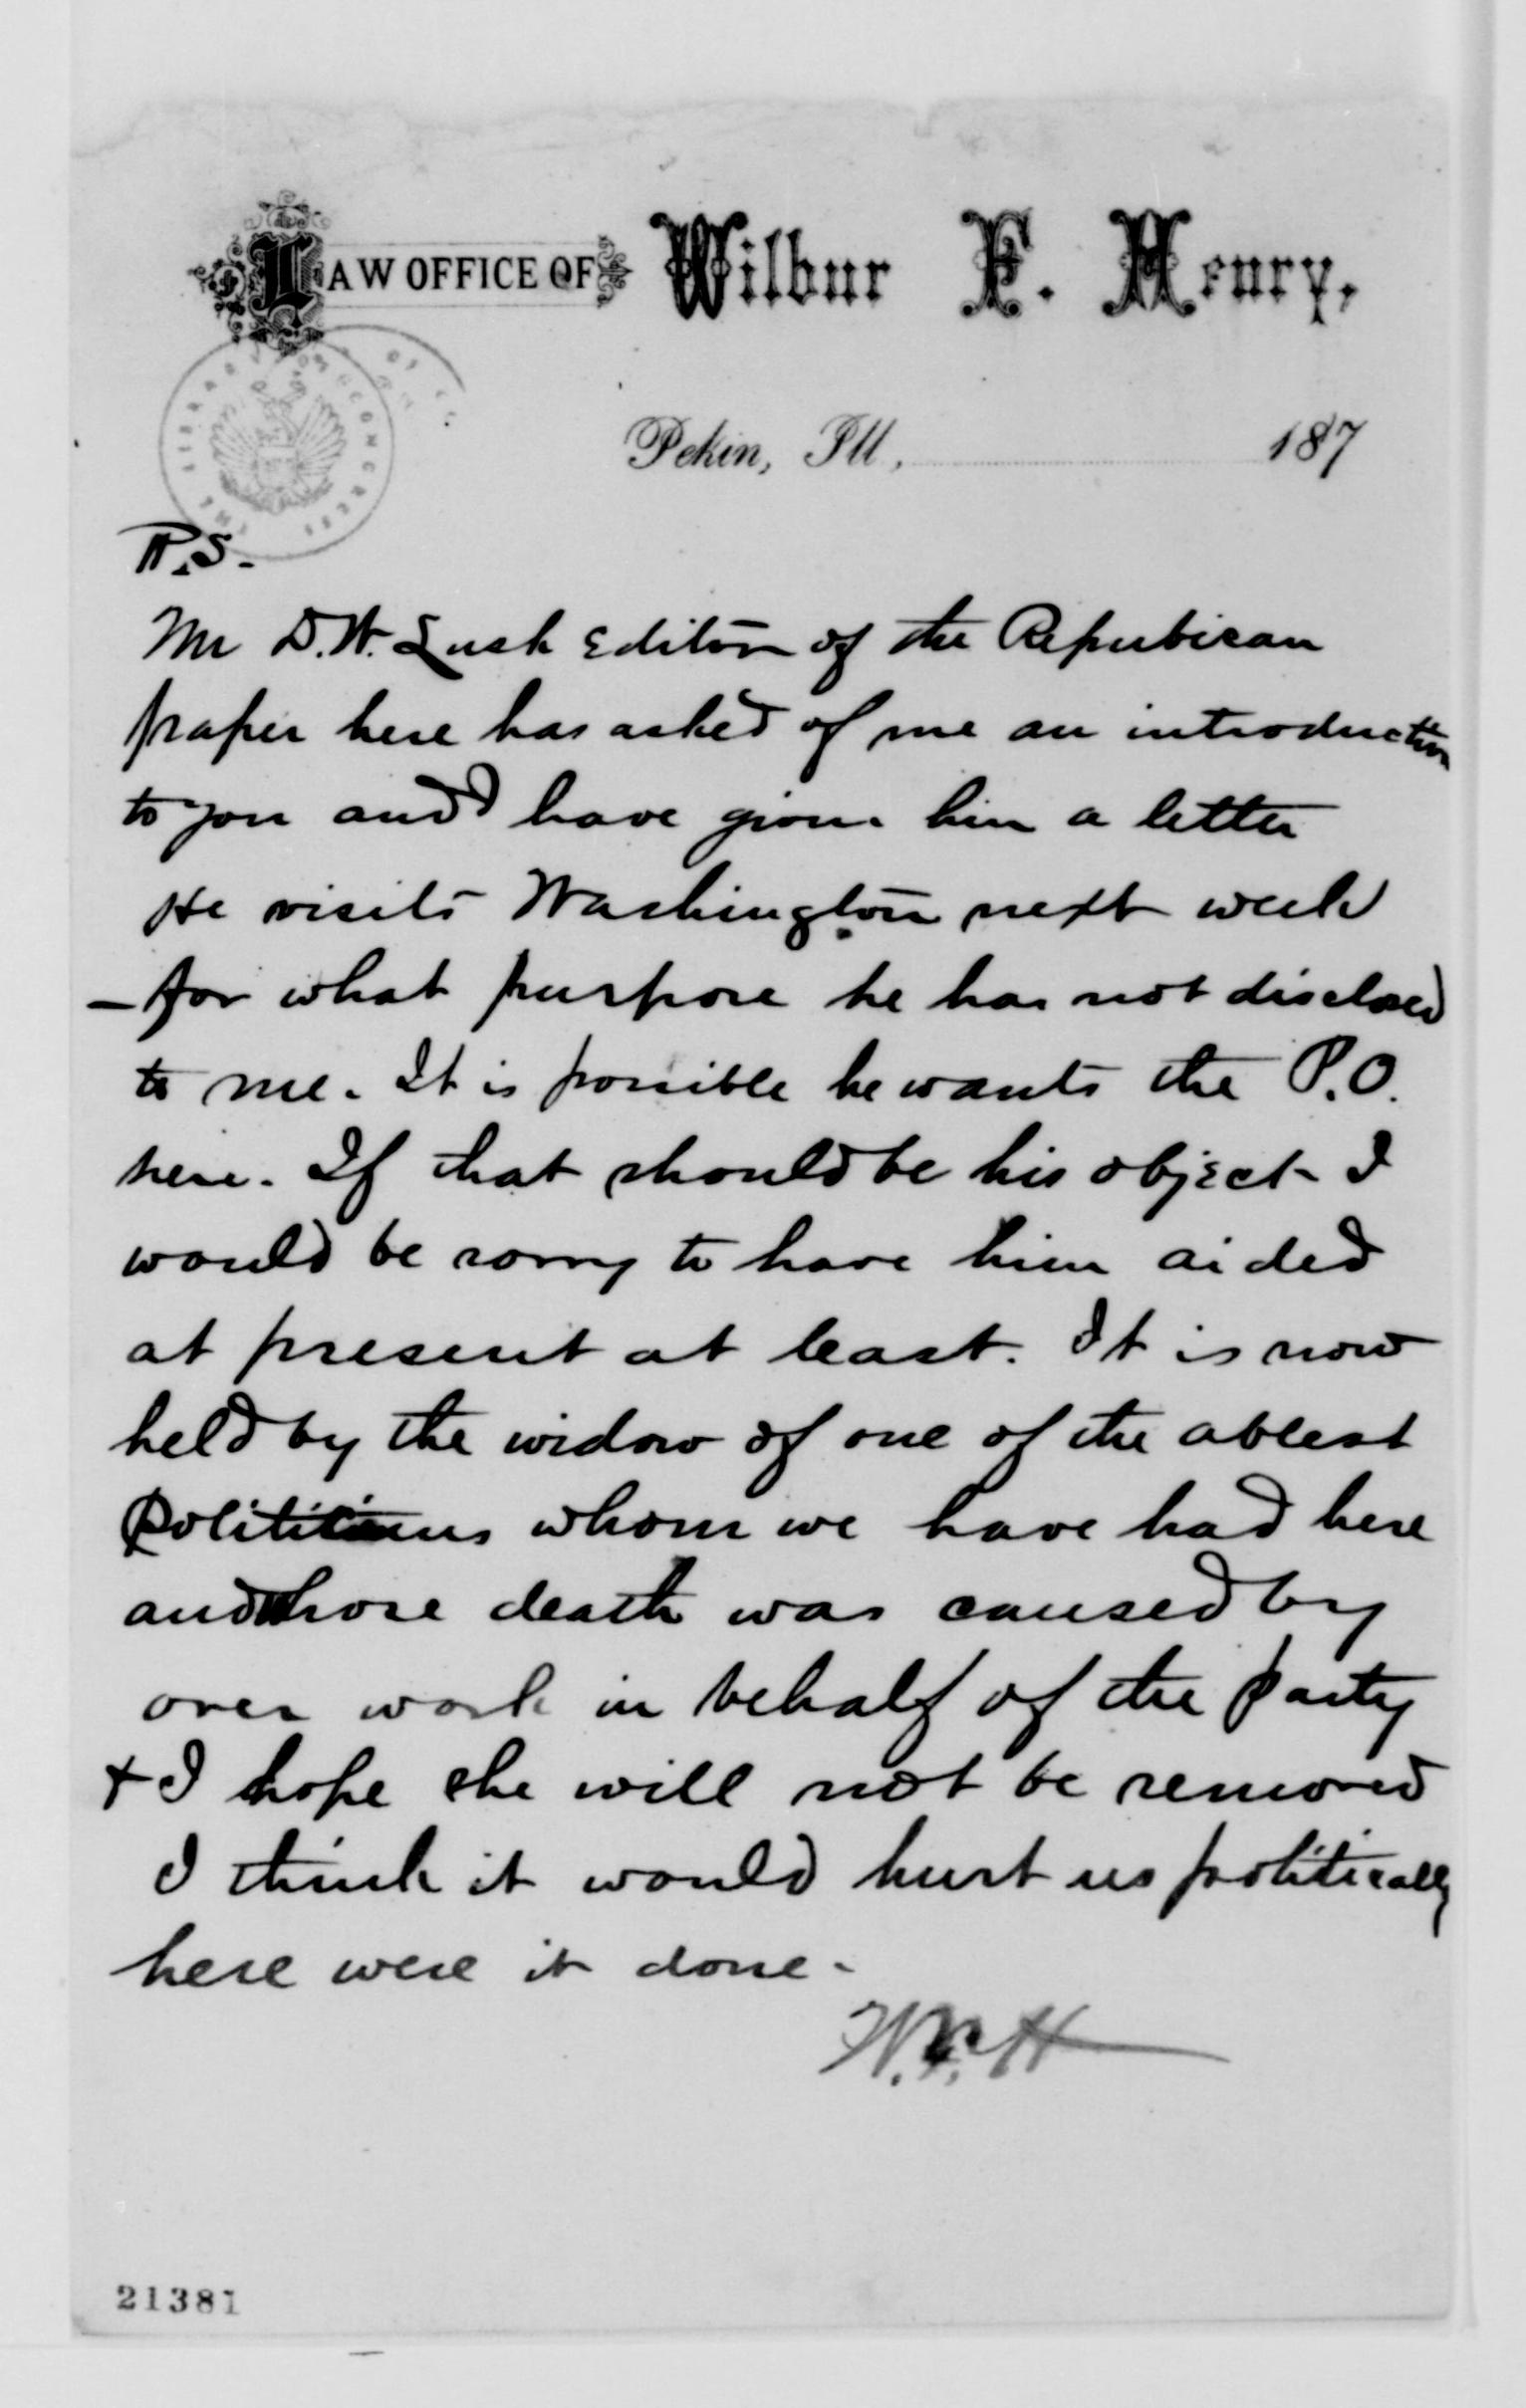 LAW OFFICE OF Wilbur F. Henry,
THE LIBRARY OF CONGRESS
Pekin, Ill, 187
P.S.
Mr D.W. Lusk Editor of the Repubican
paper here has asked of me an introduction
to you and I have given him a letter
He visits Washington next week
- for what purpose he has not disclosed
to me. It is possible he wants the P.O.
here. If that should be his object I
would be sorry to have him aided
at present at least. It is now
held by the widow of one of the ablest
Polititians whom we have had here
and whose death was caused by
over work in behalf of the party
+ I hope she will not be removed
I think it would hurt us politically
here were it done.
W.F.H
21381